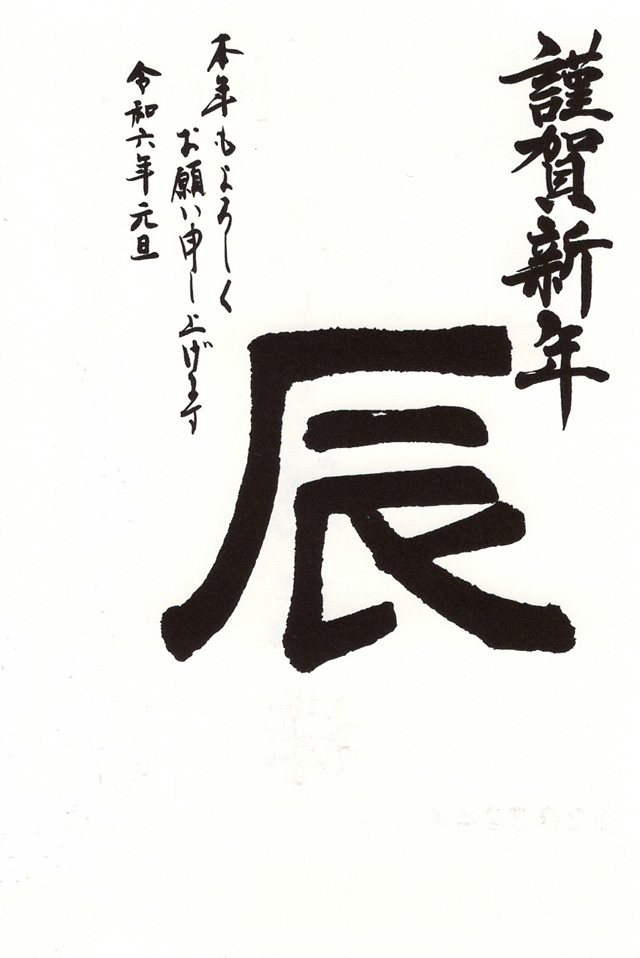 謹賀新年
辰
本年もよろしく
お願い申し上げます
令和六年元旦